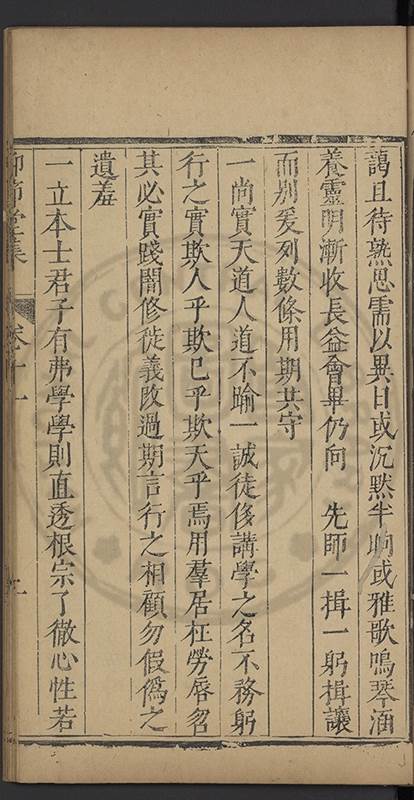 藹且待熟思需以異日或沉默半晌或雅歌鳴琴涵
養靈明漸收長益會畢仍向　先師一揖一躬揖讓
而别爰列數條用期共守
一尚實天道人道不踰一誠徒侈講學之名不務躬
行之實欺人乎欺已乎欺天乎焉用羣居枉勞脣舀
其必實踐闇修徙義改過期言行之相顧勿假僞之
遺羞
一立本士君子有弗學學則直透根宗了徹心性若
卷十一